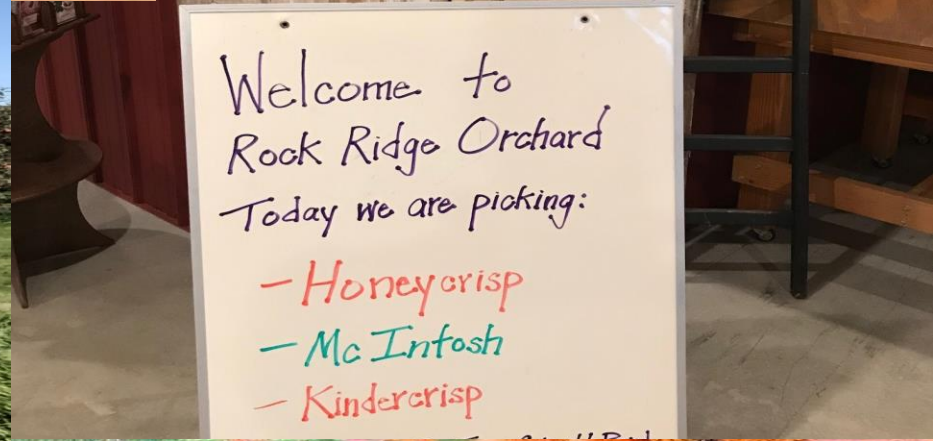 Welcome to
Rock Ridge Orchard
Today we are picking:
- Honeycrisp
- McIntosh
- Kindercrisp